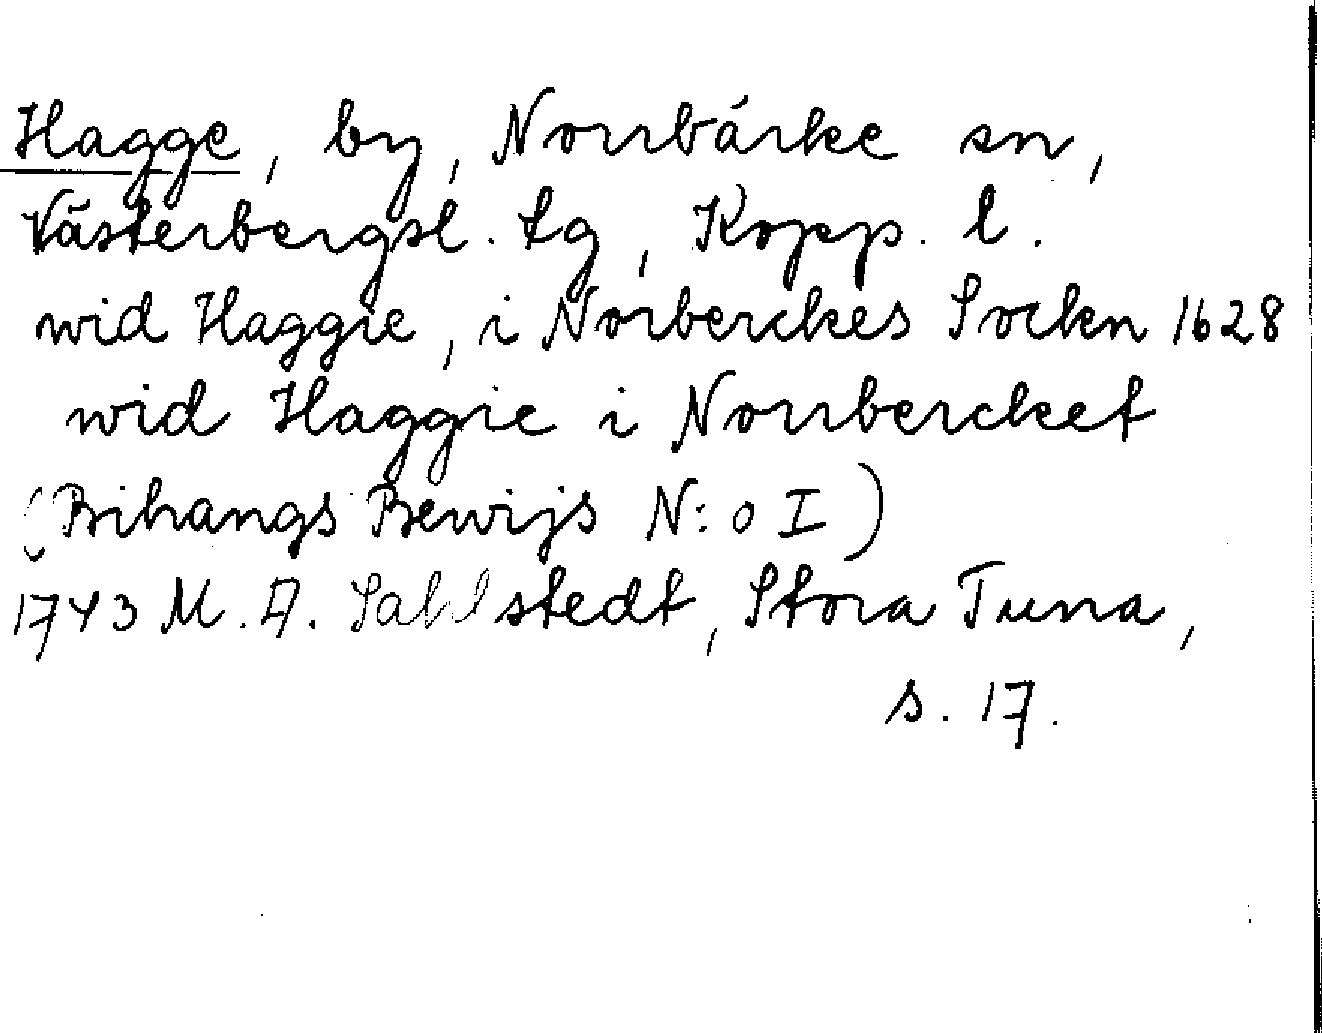 Hagge, by, Norrbärke sn,
Västerbergsl. tg, Kopp. l.
wid Haggie, i Norberckes Socken 1628
wid Haggie i Norrbercket
(Bihangs Bewijs N:o I)
1743 M. A. Sahlstedt, Stora Tuna,
s. 17.